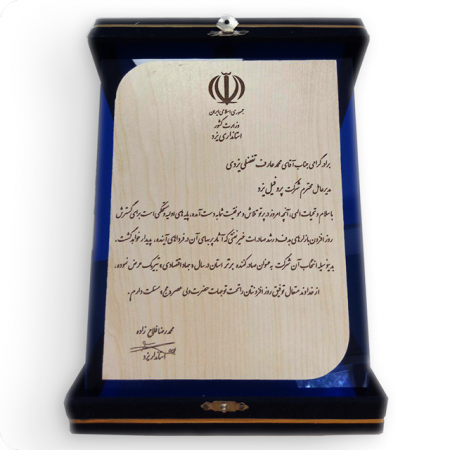 جمهوری اسلامی ایران
وزارت کشور
استانداری یزد
برادر گرامی جناب آقای محمد عارف تفضلی یزدی
مدیرعامل محترم شرکت پروفیل یزد
با سلام و تحیات الهی، آنچه امروز در پرتو تلاش و موفقیت شما به دست آمده، پایه‌های اولیه و محکمی است برای گسترش
روزافزون بازارهای هدف و رشد صادرات غیرنفتی که آثار پربهای آن در فرداهای آینده، پدیدار خواهد گشت.
بدینوسیله انتخاب آن شرکت به عنوان صادرکننده برتر استان در سال و جهاد اقتصادی را تبریک عرض نموده،
از خداوند متعال توفیق روزافزونتان را تحت توجهات حضرت ولی عصر (عج) مسئلت دارم.
محمدرضا فلاح زاده
استاندار یزد